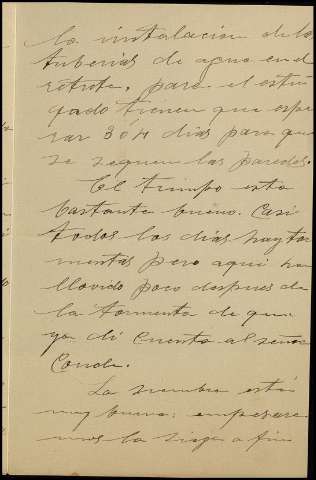 la instalacion de las
tuberias de agua en el
retrete, para el estu
cado tienen que espe
rar 3 ó 4 dias para que
se sequen las paredes.
El tiempo esta
bastante bueno. Casi
todos los dias hay tor
mentas pero aqui ha
llovido poco despues de
la tormenta de que
ya di cuenta al señor
Conde.
La siembra está
muy buena: empesare
mos la siega a fin